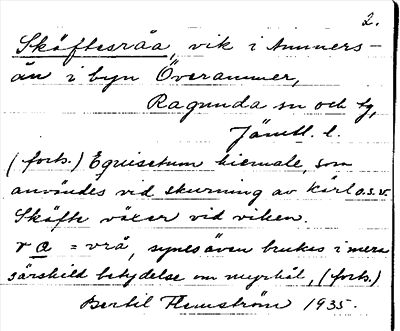 2.
Skäftesråa, vik i Ammers-
ån i byn Överammer,
Ragunda sn och tg,
Jämtl. l.
(forts.) Equisetum hiemale, som
användes vid skurning av kärl o.s.v.
Skäfte växer vid viken.
r a = vrå, synes även brukas i mera
särskild betydelse om myrhål, (forts.)
Bertil Flemström 1935.